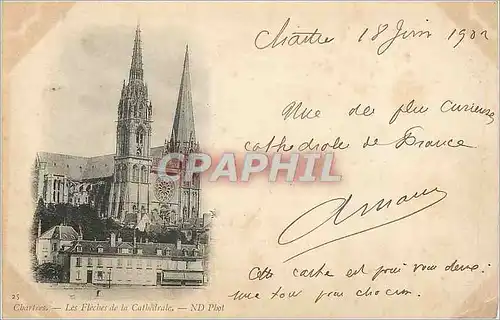 Chartres 18 Juin 1902
Une des plus curieuses
cathédrale de France
CPAPHIL
Armany
Cette carte est pour vous deux :
une tour pour chacun.
25
Chartres. — Les Flèches de la Cathédrale. — ND Phot